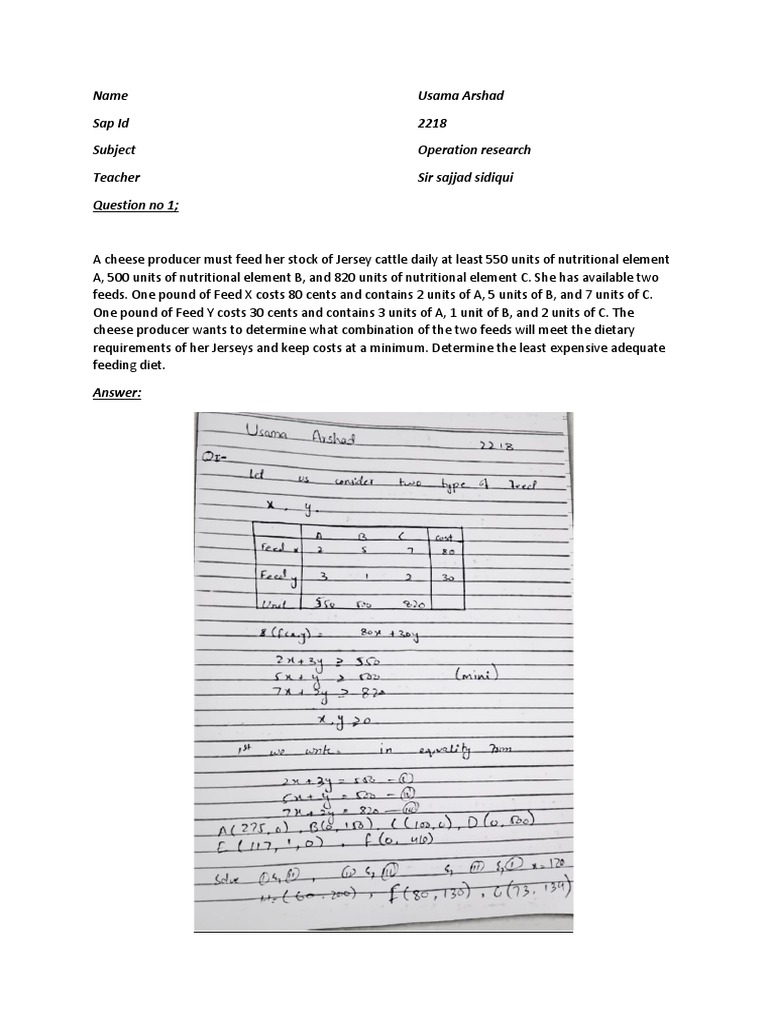 Name Usama Arshad
Sap Id 2218
Subject Operation research
Teacher Sir sajjad sidiqui
Question no 1;
A cheese producer must feed her stock of Jersey cattle daily at least 550 units of nutritional element
A, 500 units of nutritional element B, and 820 units of nutritional element C. She has available two
feeds. One pound of Feed X costs 80 cents and contains 2 units of A, 5 units of B, and 7 units of C.
One pound of Feed Y costs 30 cents and contains 3 units of A, 1 unit of B, and 2 units of C. The
cheese producer wants to determine what combination of the two feeds will meet the dietary
requirements of her Jerseys and keep costs at a minimum. Determine the least expensive adequate
feeding diet.
Answer:
Usama Arshad 2218
Let us consider two type of feed
x, y.
A B C cost
Feed x 2 5 7 80
Feed y 3 1 2 30
Unit 550 500 820
(f(x,y) = 80x + 30y
2x + 3y ≥ 550
5x + y ≥ 500 (mini)
7x + 2y ≥ 820
x, y ≥ 0
1st we write in equality
2x + 3y = 550 - (i)
5x + y = 500 - (ii)
7x + 2y = 820 - (iii)
A(275,0), B(0, ), C(100,0), D(0,500)
E(117,1,0), F(0,410)
Solve (i) &, (ii) &, (iii) &, (i) x = 120
(60,200), F(80,130), G(73,134)